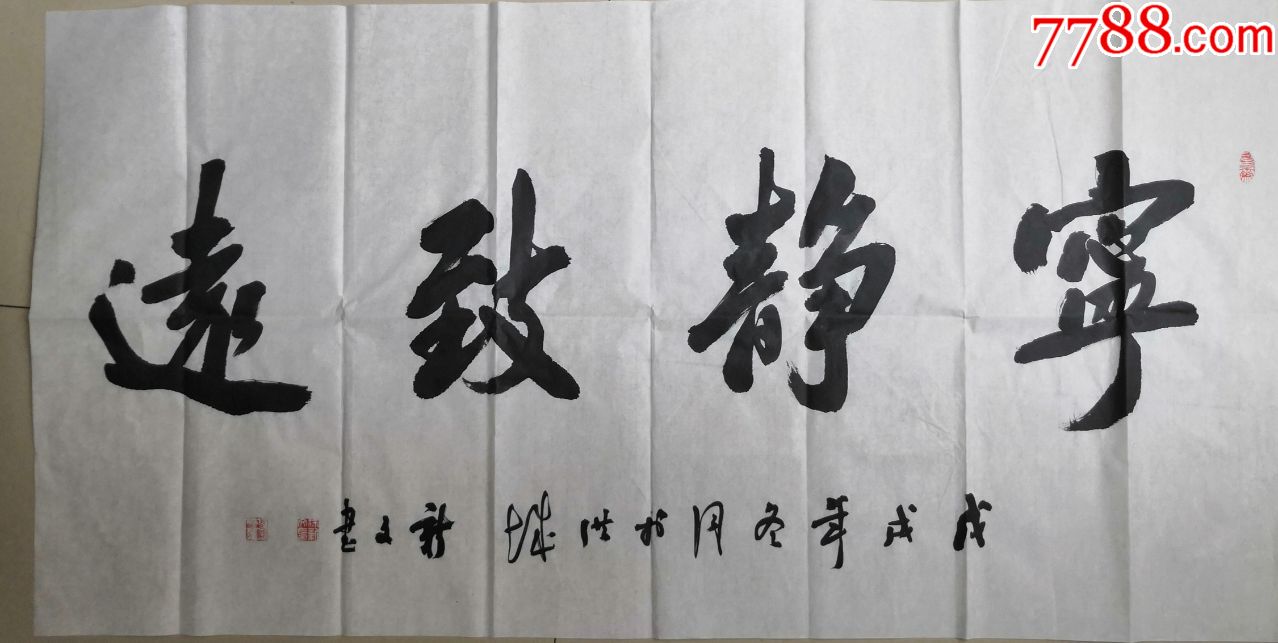 7788.com
寧靜致遠
戊戌年冬月於洪城新文書